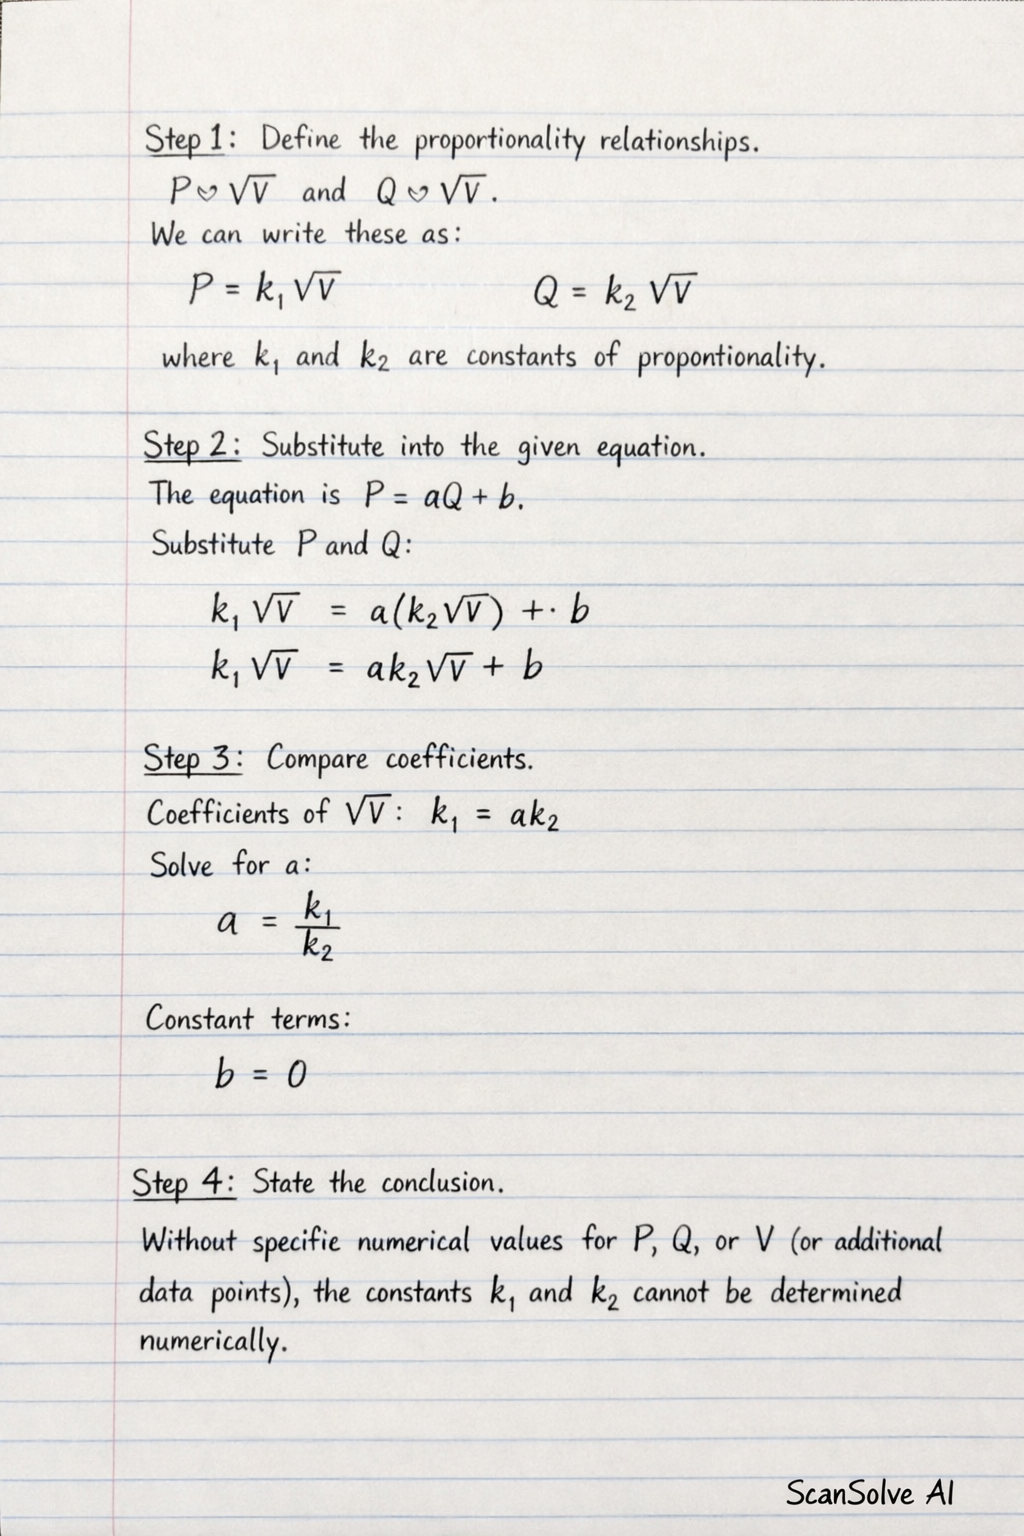 Step 1: Define the proportionality relationships.
P ♡ √V and Q ♡ √V.
We can write these as:
P = k₁ √V Q = k₂ √V
where k₁ and k₂ are constants of propontionality.
Step 2: Substitute into the given equation.
The equation is P = aQ + b.
Substitute P and Q:
k₁ √V = a(k₂√V) +· b
k₁ √V = ak₂√V + b
Step 3: Compare coefficients.
Coefficients of √V: k₁ = ak₂
Solve for a:
a = k₁/k₂
Constant terms:
b = 0
Step 4: State the conclusion.
Without specifie numerical values for P, Q, or V (or additional
data points), the constants k₁ and k₂ cannot be determined
numerically.
ScanSolve AI